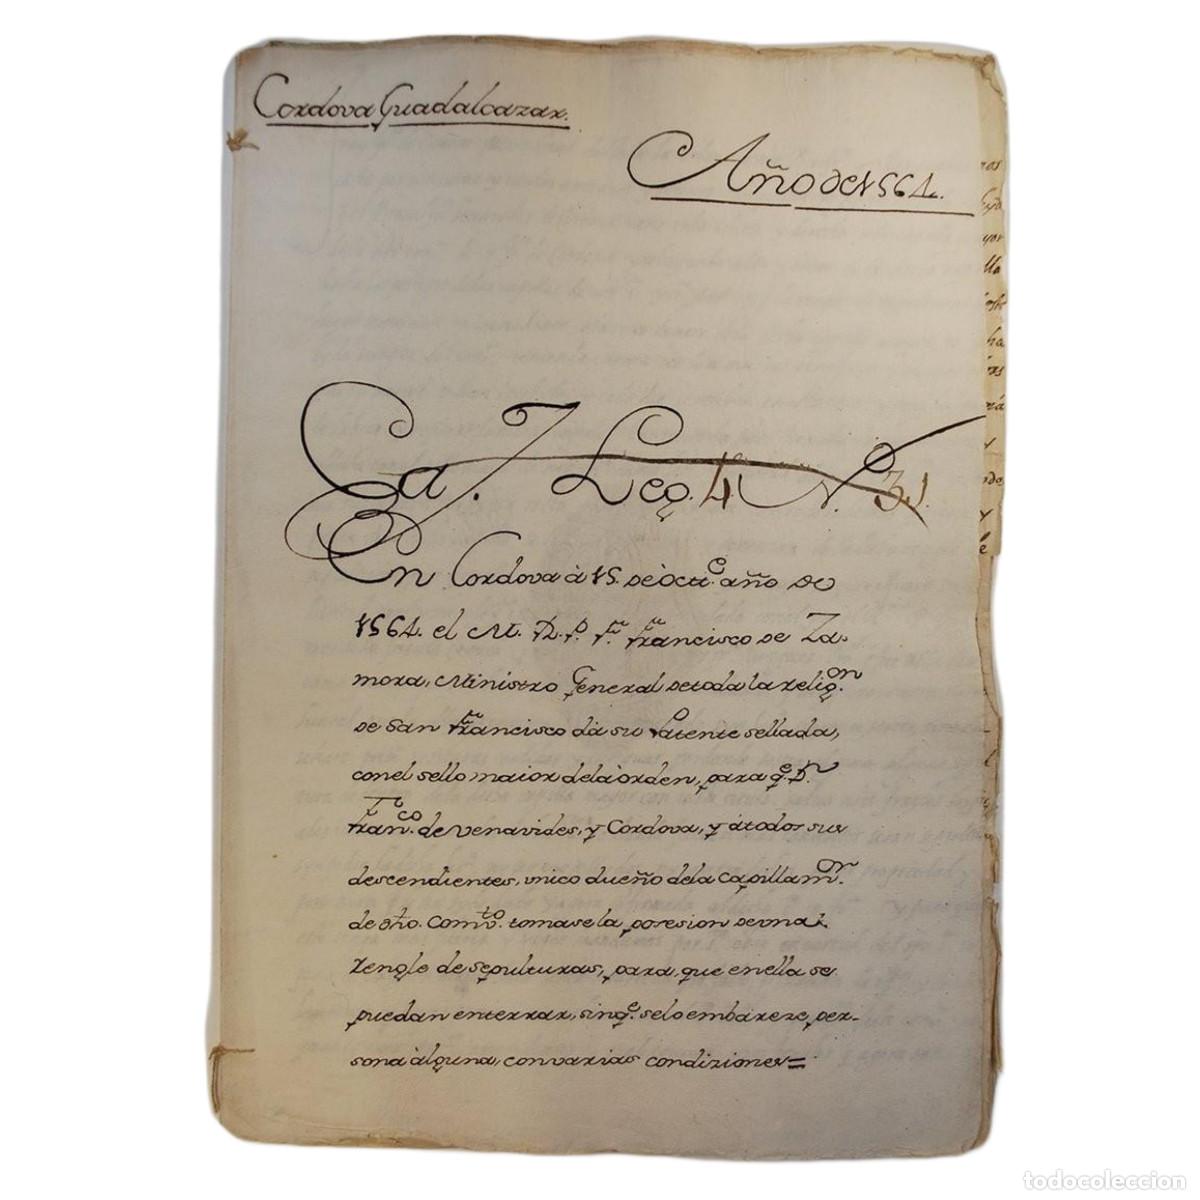 Cordova Guadalcazar.
Año de 1564.
Ca. 7. Leg. 4 N.º 31.
En Cordova à 15. de Oct.e año de
1564. el M. R. P. F. Francisco de Za-
mora, Ministro General de toda la relig.on
de San Francisco dà su Patente sellada,
con el sello maior de la òrden, para q.e D.n
Fran.co de Venavides, y Cordova, y à todos sus
descendientes, unico dueño de la Capilla m.or
de dho. Comv.to tomase la posesion de una
rengle de sepulturas, para, que en ella se
puedan enterrar, sin q.e se lo embàreze, per-
sona àlguna, con varias condiziones=
todocoleccion